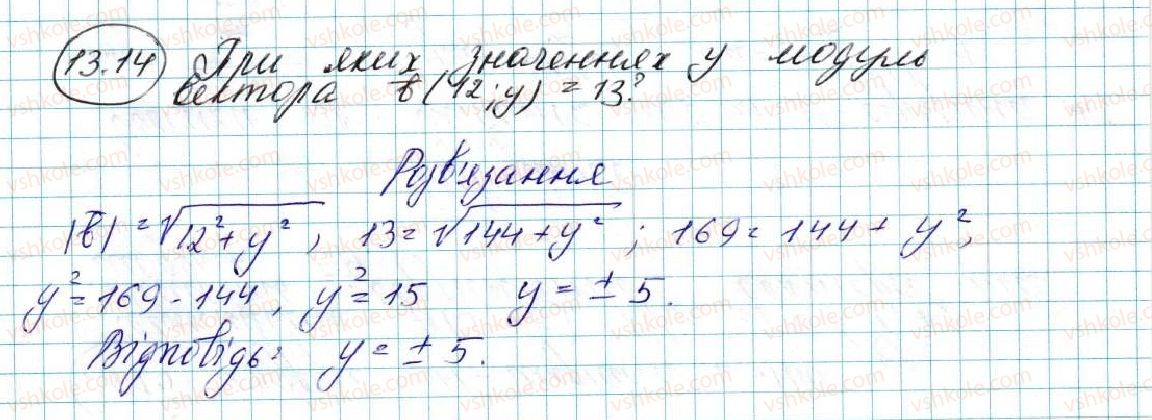 13.14 При яких значеннях y модуль
вектора b̅(12; y) = 13?
Розв'язання
|b̅| = √(12² + y²), 13 = √(144 + y²); 169 = 144 + y²,
y² = 169 - 144, y² = 15 y = ± 5.
Відповідь: y = ± 5.